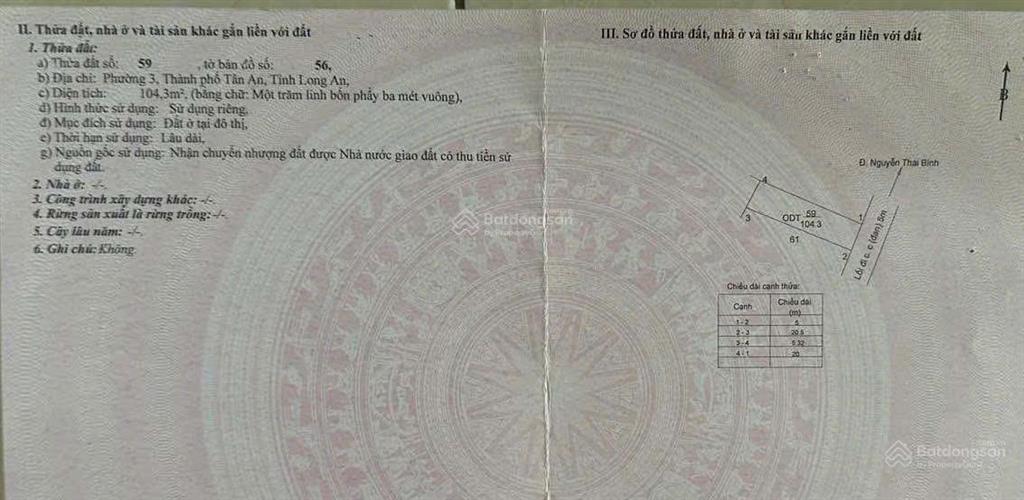 II. Thửa đất, nhà ở và tài sản khác gắn liền với đất
1. Thửa đất:
a) Thửa đất số: 59 , tờ bản đồ số: 56,
b) Địa chỉ: Phường 3, Thành phố Tân An, Tỉnh Long An,
c) Diện tích: 104,3m², (bằng chữ: Một trăm linh bốn phẩy ba mét vuông),
d) Hình thức sử dụng: Sử dụng riêng,
đ) Mục đích sử dụng: Đất ở tại đô thị,
e) Thời hạn sử dụng: Lâu dài,
g) Nguồn gốc sử dụng: Nhận chuyển nhượng đất được Nhà nước giao đất có thu tiền sử
dụng đất.
2. Nhà ở: -/-.
3. Công trình xây dựng khác: -/-.
4. Rừng sản xuất là rừng trồng: -/-.
5. Cây lâu năm: -/-.
6. Ghi chú: Không.
III. Sơ đồ thửa đất, nhà ở và tài sản khác gắn liền với đất
B
Đ. Nguyễn Thái Bình
4
3
ODT 59
104.3
1
61
2
Lối đi c. c (đan) 5m
Chiều dài cạnh thửa:
Cạnh Chiều dài
(m)
1-2 5
2-3 20.5
3-4 5.32
4-1 20
Batdongsan
by PropertyGuru
Batdongsan
by PropertyGuru